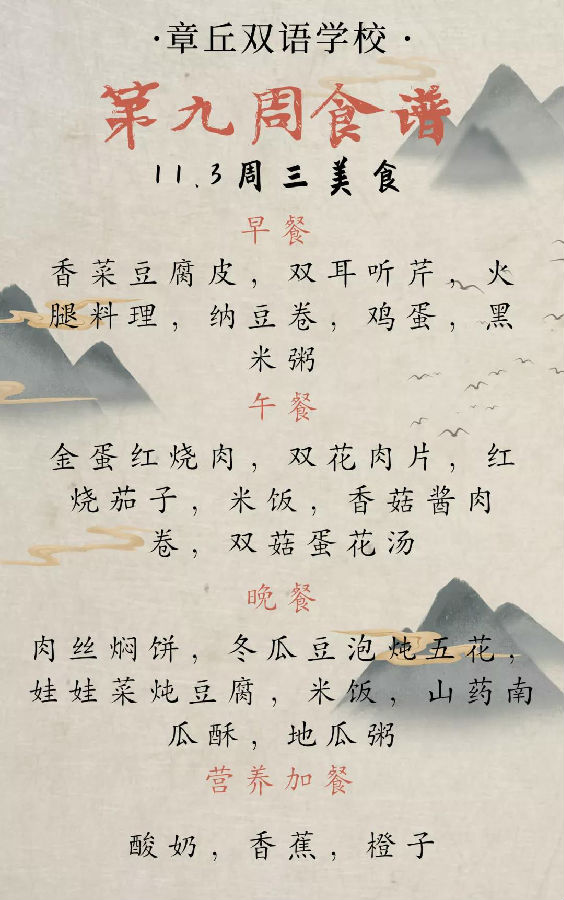 ·章丘双语学校·
第九周食谱
11.3周三美食
早餐
香菜豆腐皮，双耳听芹，火
腿料理，纳豆卷，鸡蛋，黑
米粥
午餐
金蛋红烧肉，双花肉片，红
烧茄子，米饭，香菇酱肉
卷，双菇蛋花汤
晚餐
肉丝焖饼，冬瓜豆泡炖五花，
娃娃菜炖豆腐，米饭，山药南
瓜酥，地瓜粥
营养加餐
酸奶，香蕉，橙子